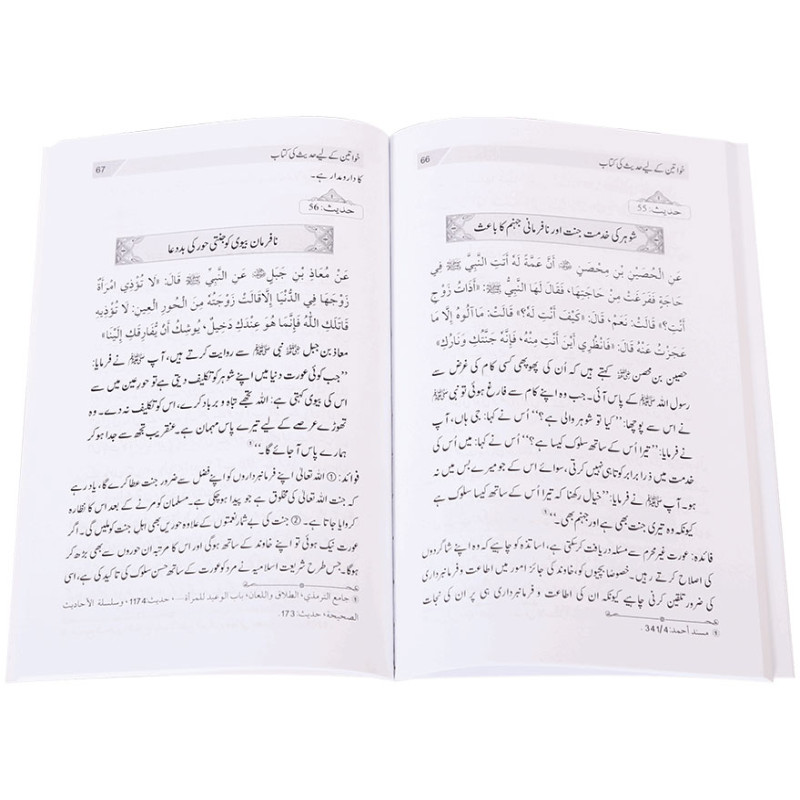 66
خواتین کے لیے حدیث کی کتاب
حدیث: 55
شوہر کی خدمت جنت اور نافرمانی جہنم کا باعث
عَنِ الْحُصَيْنِ بْنِ مِحْصَنٍ أَنَّ عَمَّةً لَهُ أَتَتِ النَّبِيَّ ﷺ فِي
حَاجَةٍ فَفَرَغَتْ مِنْ حَاجَتِهَا، فَقَالَ لَهَا النَّبِيُّ ﷺ: «أَذَاتُ زَوْجٍ
أَنْتِ؟» قَالَتْ: نَعَمْ، قَالَ: «كَيْفَ أَنْتِ لَهُ؟» قَالَتْ: مَا آلُوهُ إِلَّا مَا
عَجَزْتُ عَنْهُ قَالَ: «فَانْظُرِي أَيْنَ أَنْتِ مِنْهُ، فَإِنَّهُ جَنَّتُكِ وَنَارُكِ»
حصین بن محصن کہتے ہیں کہ اُن کی پھوپھی کسی کام کی غرض سے
رسول اللہ ﷺ کے پاس آئی۔ جب وہ اپنے کام سے فارغ ہوئی تو نبی ﷺ
نے اس سے پوچھا: ’’کیا تو شوہر والی ہے؟‘‘ اُس نے کہا: جی ہاں، آپ
نے فرمایا: ’’تیرا اُس کے ساتھ سلوک کیسا ہے؟‘‘ اُس نے کہا: میں اُس کی
خدمت میں ذرا برابر کوتاہی نہیں کرتی، سوائے اس کے جو میرے بس میں نہ
ہو۔ آپ ﷺ نے فرمایا: ’’خیال رکھنا کہ تیرا اُس کے ساتھ کیسا سلوک ہے
کیونکہ وہ تیری جنت بھی ہے اور جہنم بھی۔‘‘①
فائدہ: عورت غیر محرم سے مسئلہ دریافت کر سکتی ہے، اساتذہ کو چاہیے کہ وہ اپنے شاگردوں
کی اصلاح کرتے رہیں۔ خصوصاً بچیوں کو، خاوند کی جائز امور میں اطاعت و فرمانبرداری
کی ضرور تلقین کرنی چاہیے کیونکہ ان کی اطاعت و فرمانبرداری ہی پر ان کی نجات
① مسند أحمد: 341/4.
67
خواتین کے لیے حدیث کی کتاب
کا دارومدار ہے۔
حدیث: 56
نافرمان بیوی کو جنتی حور کی بددعا
عَنْ مُعَاذِ بْنِ جَبَلٍ عَنِ النَّبِيِّ ﷺ قَالَ: «لَا تُؤْذِي امْرَأَةٌ
زَوْجَهَا فِي الدُّنْيَا إِلَّا قَالَتْ زَوْجَتُهُ مِنَ الْحُورِ الْعِينِ: لَا تُؤْذِيهِ
قَاتَلَكِ اللَّهُ فَإِنَّمَا هُوَ عِنْدَكِ دَخِيلٌ، يُوشِكُ أَنْ يُفَارِقَكِ إِلَيْنَا»
معاذ بن جبل نبی ﷺ سے روایت کرتے ہیں، آپ ﷺ نے فرمایا:
’’جب کوئی عورت دنیا میں اپنے شوہر کو تکلیف دیتی ہے تو حور عین میں سے
اس کی بیوی کہتی ہے: اللہ تجھے تباہ و برباد کرے، اس کو تکلیف نہ دے۔ وہ
تھوڑے عرصے کے لیے تیرے پاس مہمان ہے۔ عنقریب تجھ سے جدا ہو کر
ہمارے پاس آ جائے گا۔‘‘①
فوائد: ① اللہ تعالیٰ اپنے فرمانبرداروں کو اپنے فضل سے ضرور جنت عطا کرے گا، یاد رہے
کہ جنت اللہ تعالیٰ کی مخلوق ہے جو پیدا ہو چکی ہے۔ مسلمان کو مرنے کے بعد اس کا نظارہ
کروایا جاتا ہے۔ ② جنت کی بے شمار نعمتوں کے علاوہ حوریں بھی اہل جنت کو ملیں گی۔ اگر
عورت نیک ہوئی تو اپنے خاوند کے ساتھ ہوگی اور اس کا مرتبہ ان حوروں سے بھی بڑھ کر
ہوگا۔ جس طرح شریعت اسلامیہ نے مرد کو عورت کے ساتھ حسن سلوک کی تاکید کی ہے، اسی
① جامع الترمذي، الطلاق واللعان، باب الوعيد للمرأة....، حديث: 1174، وسلسلة الأحاديث
الصحيحة، حديث: 173.